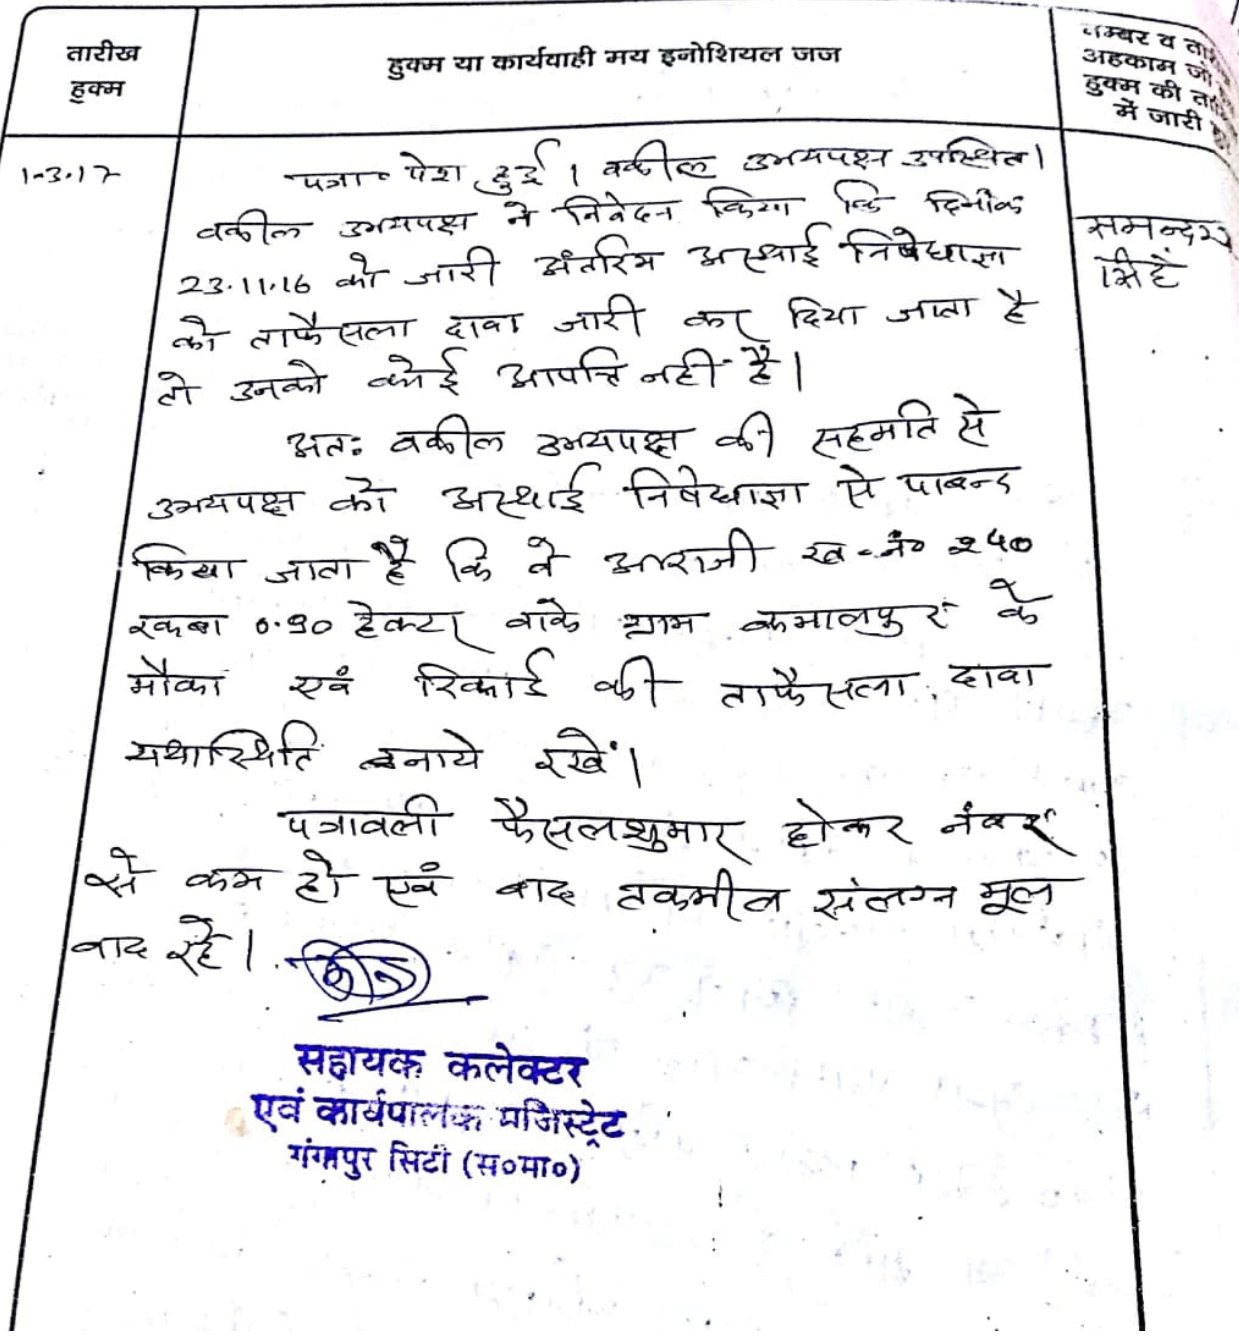 तारीख
हुक्म
हुक्म या कार्यवाही मय इनोशियल जज
नम्बर व
अहकाम जो
हुक्म की
में जारी
1.3.17
पत्रा० पेश हुई। वकील उभयपक्ष उपस्थित।
वकील उभयपक्ष ने निवेदन किया कि दिनांक
23.11.16 को जारी अंतरिम अस्थाई निषेधाज्ञा
को ताफैसला दावा जारी कर दिया जाता है
तो उनको कोई आपत्ति नहीं है।
अतः वकील उभयपक्ष की सहमति से
उभयपक्ष को अस्थाई निषेधाज्ञा से पाबन्द
किया जाता है कि वे आराजी ख.नं० 240
रकबा 0.90 हेक्टर वाके ग्राम कमालपुर के
मौका एवं रिकार्ड की ताफैसला दावा
यथास्थिति बनाये रखें।
पत्रावली फैसलशुमार होकर नंबर
से कम हो एवं बाद तकमील संलग्न मूल
वाद रहे।
समन्दर
सिंह
सहायक कलेक्टर
एवं कार्यपालक मजिस्ट्रेट
गंगापुर सिटी (स०मा०)